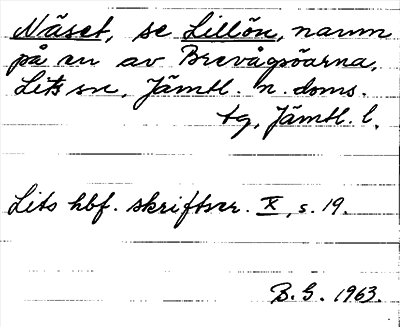 Näset, se Lillön, namn
på en av Brevågsöarna,
Lits sn, Jämtl. n. doms.
tg, Jämtl. l.
Lits hbf. skriftser. X, s. 19.
B. G. 1963.